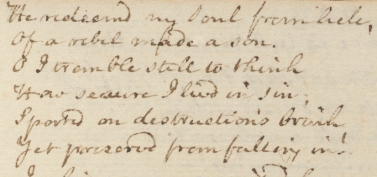 He redeemd my Soul from hele,
Of a rebel made a son.
O I tremble still to think
How secure I livd in sin,
Sported on destructions brink
Yet preserved from falling in!